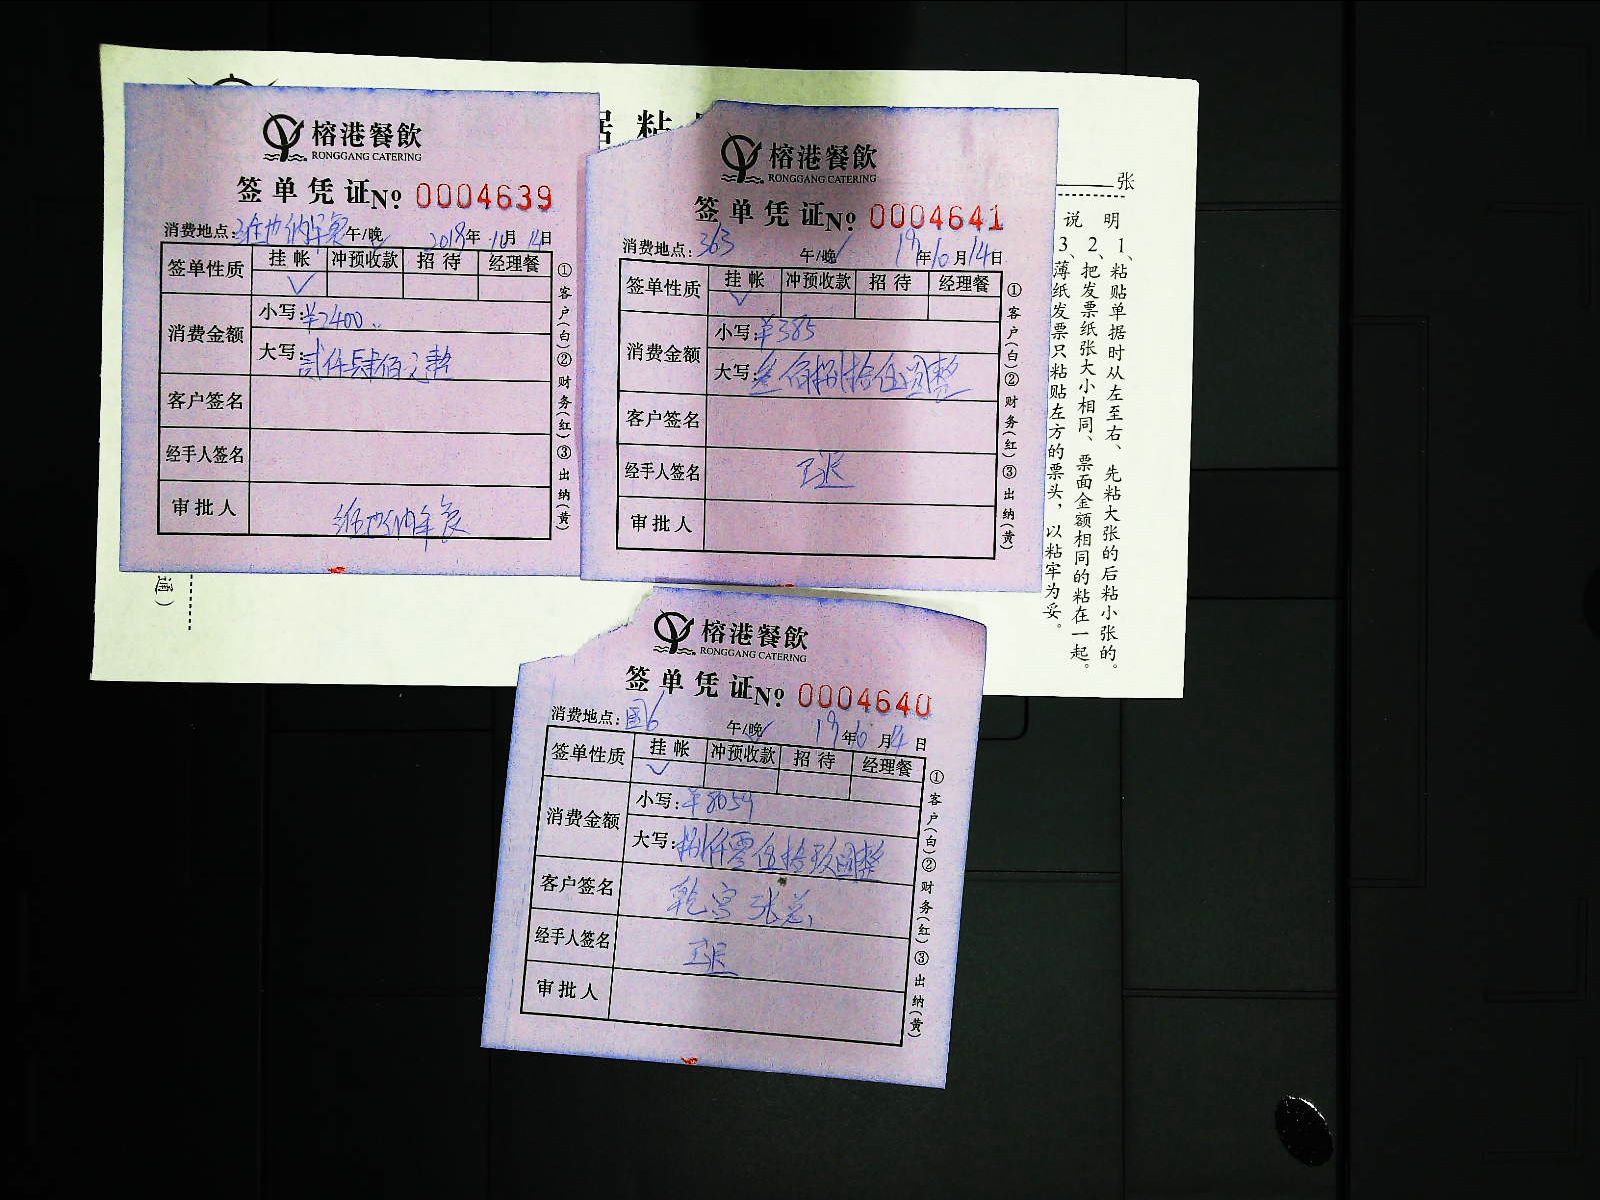 榕港餐飲
RONGGANG CATERING
签单凭证№ 0004639
消费地点: 午/晚 2018年10月14日
签单性质 挂帐 冲预收款 招待 经理餐
✓
消费金额
小写:¥2400
大写:贰仟肆佰元整
客户签名
经手人签名
审批人
①客户(白)②财务(红)③出纳(黄)
榕港餐飲
RONGGANG CATERING
签单凭证№ 0004641
消费地点:363 午/晚 年10月14日
签单性质 挂帐 冲预收款 招待 经理餐
✓
消费金额
小写:¥385
大写:叁佰捌拾伍圆整
客户签名
经手人签名
审批人
①客户(白)②财务(红)③出纳(黄)
榕港餐飲
RONGGANG CATERING
签单凭证№ 0004640
消费地点:国6 午/晚 年10月14日
签单性质 挂帐 冲预收款 招待 经理餐
✓
消费金额
小写:¥8059
大写:捌仟零伍拾玖圆整
客户签名 张总
经手人签名
审批人
①客户(白)②财务(红)③出纳(黄)
据粘
张
说明
1、粘贴单据时从左至右、先粘大张的后粘小张的。
2、把发票纸张大小相同、票面金额相同的粘在一起。
3、薄纸发票只粘贴左方的票头，以粘牢为妥。
通）